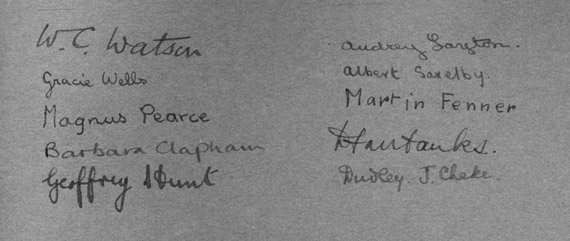 W. C. Watson
Gracie Wells
Magnus Pearce
Barbara Clapham
Geoffrey Hunt
Audrey
Albert Saxelby.
Martin Fenner
Dudley. J. Cheke.